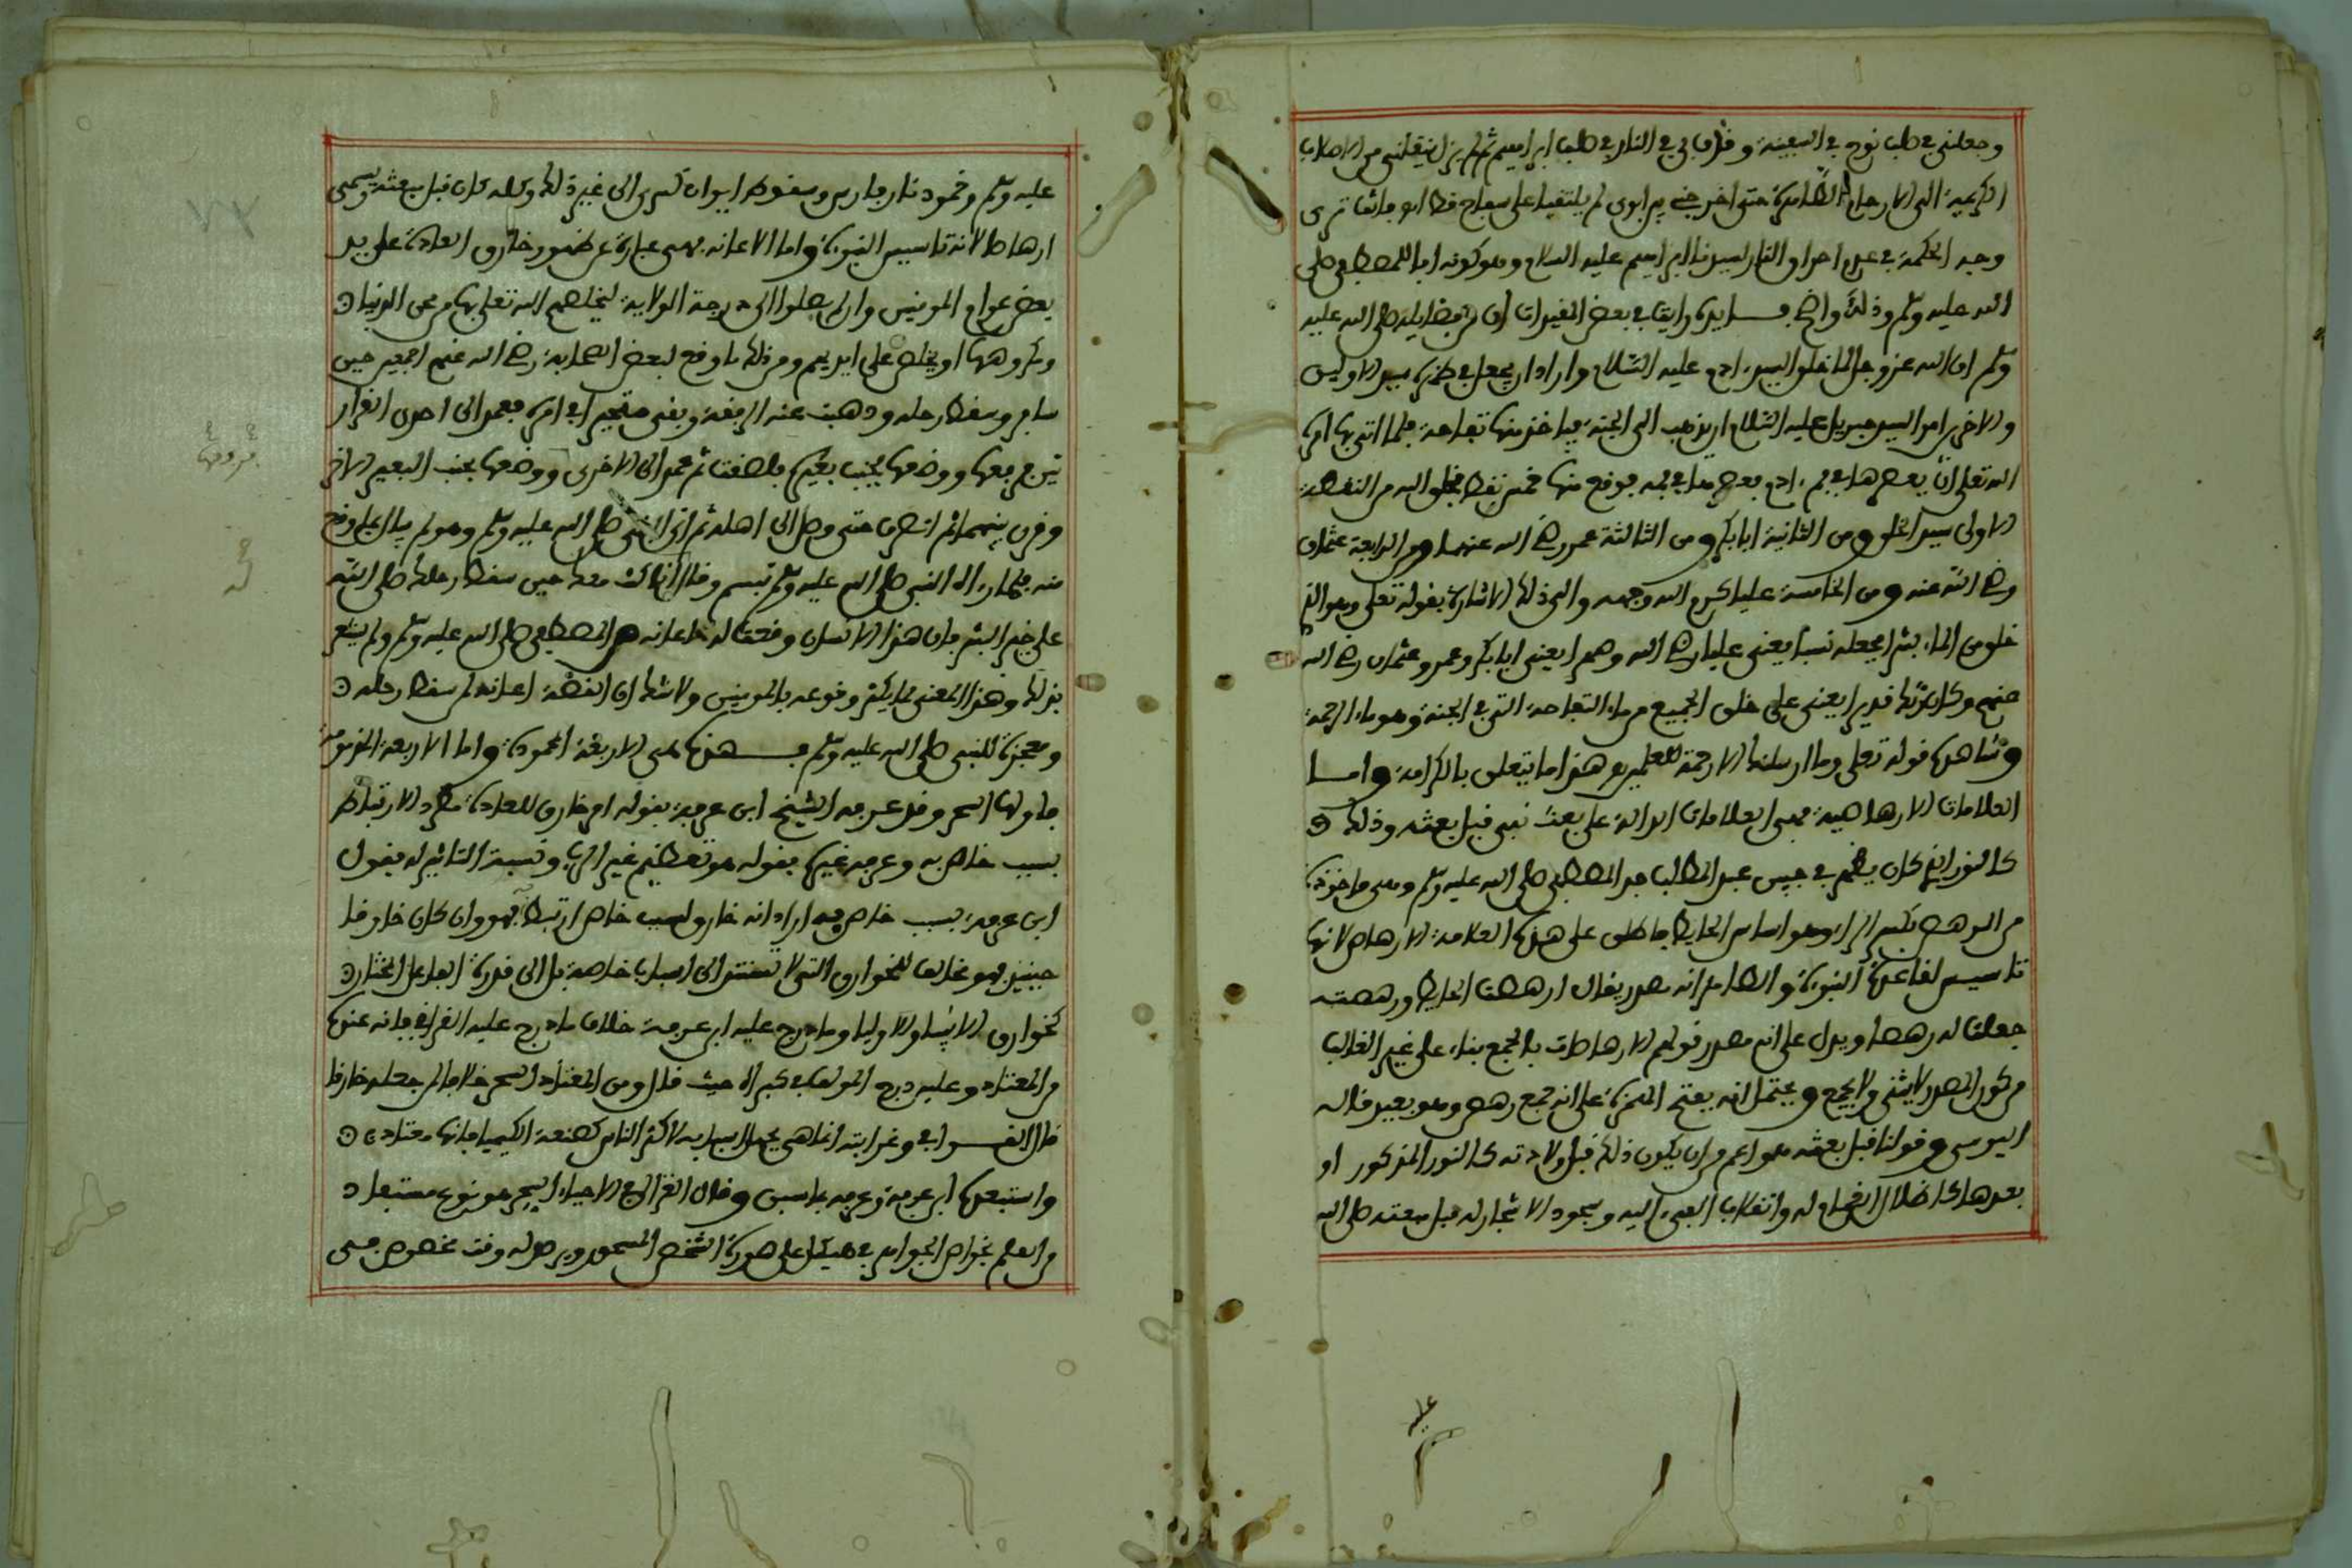 وجعلني في صلب نوح في السفينة وقذف بي في النار في صلب ابراهيم ثم لم يزل ينقلني من الاصلاب
الكريمة الى الارحام الطاهرة حتى اخرجني بين ابوي لم يلتقيا على سفاح قط اهو فانت ترى
وجه الحكمة في عدم احراق النار لسيدنا ابراهيم عليه السلام وهو كونه ابا للمصطفى صلى
الله عليه وسلم وذلك واضح فايدة رايت في بعض التقييدات ان من فضايله صلى الله عليه
وسلم ان الله عز وجل لما خلق السيد ادم عليه السلام واراد ان يجعل في ظهره سيد الاولين
والاخرين امر السيد جبريل عليه السلام ان يذهب الى الجنة فياخذ منها تفاحة فلما اتى بها امره
الله تعلى ان يعصرها في فم ادم فعصرها في فمه فوقع منها خمس نقط فخلق الله من النقطة
الاولى سيد الخلق ومن الثانية ابا بكر ومن الثالثة عمر رضي الله عنهما ومن الرابعة عثمان
رضي الله عنه ومن الخامسة عليا كرم الله وجهه والى ذلك الاشارة بقوله تعلى وهو الذي
خلق من الماء بشرا فجعله نسبا يعني عليا رضي الله وصهرا يعني ابا بكر وعمر وعثمان رضي الله
عنهم وكان ربك قديرا يعني على خلق الجميع من ماء التفاحة التي في الجنة وهو ماء الرحمة
وشاهده قوله تعلى وما ارسلناك الا رحمة للعلمين هذا ما يتعلق بالكرامة واما
العلامات الارهاصية فهي العلامات الدالة على بعث نبي قبل بعثه وذلك
كالنور الذي كان يظهر في جبين عبد المطلب جد المصطفى صلى الله عليه وسلم وهي ماخوذة
من الرهص بكسر الراء وهو اساس الحايط فاطلق على هذه العلامة الارهاص لانها
تاسيس لقاعدة النبوة والظاهر انه مصدر يقال ارهصت الحايط ورهصته
جعلت له رهصا ويدل على انه مصدر قولهم الارهاصات بالجمع بناء على غير الغالب
من كون المصدر لا يثنى ولا يجمع ويحتمل انه بفتح الهمزة على انه جمع رهص وهو بعيد قاله
اليوسي وقولنا قبل بعثه هو اعم من ان يكون ذلك قبل ولادته كالنور المذكور او
بعدها كاظلال الغمام له وانقلاب الفيء اليه وسجود الاشجار له قبل بعثته صلى الله
عليه
عليه وسلم وخمود نار فارس وسقوط ايوان كسرى الى غير ذلك وكله كان قبل مبعثه ويسمى
ارهاصا لانه تاسيس النبوة واما الاعانة فهي عبارة عن ظهور خارق العادة على يد
بعض عوام المومنين وان لم يصلوا الى درجة الولاية ليخلصهم الله تعلى بها من محن الدنيا
ومكروهها او يخلص على ايديهم ومن ذلك ما وقع لبعض الصحابة رضي الله عنهم اجمعين حين
سافر وسقط رحله وذهبت عنه الرفقة وبقي متحيرا في امره فعمد الى احدى الغرار
تين فرفعها ووضعها بجنب بعيره فلصقت ثم عمد الى الاخرى ووضعها بجنب البعير الاخر
وقرن بينهما ثم انصرف حتى وصل الى اهله ثم اتى النبي صلى الله عليه وسلم وهو لم يبال بما وقع
منه فلما راه النبي صلى الله عليه وسلم تبسم وقال انا كنت معك حين سقط رحلك صلى الله
على خير البشر فان هذا الانسان وقعت له اعانة من المصطفى صلى الله عليه وسلم ولم يشعر
بذلك وهذا المعنى مما يكثر وقوعه بالمومنين ولا شك ان القصة اعانة لمن سقط رحله
ومعجزة للنبي صلى الله عليه وسلم فهذه هي الاربعة المحمودة واما الاربعة المذمومة
فاولها السحر وقد عرفه الشيخ ابن عرفة بقوله امر خارق للعادة مطرد الارتباط
بسبب خاص به وعرفه غيره بقوله هو تعظيم غير الله ونسبة التاثير له فقول
ابن عرفة بسبب خاص به اراد انه خارق لسبب خاص ارتبط به فهو وان كان خارقا
حينئذ فهو مخالف للخوارق التي لا تستند الى اسباب خاصة بل الى قدرة الفاعل المختار
كخوارق الانبياء والاولياء وما درج عليه ابن عرفة خلاف ما درج عليه القرافي فانه عنده
من المعتاد وعليه درج المولف في كبراه حيث قال ومن المعتاد السحر خلافا لمن جعله خارقا
قال القرافي وغرابته انما هي بجهل اسبابه لاكثر الناس كصنعة الكيمياء فانها معتادة
واستبعده ابن عرفة وعرفه بما سبق وقال الغزالي في الاحياء السحر هو نوع مستفاد
من العلم بخواص الجواهر في هيكل على صورة الشخص المسحور ويرصد له وقت مخصوص فهي